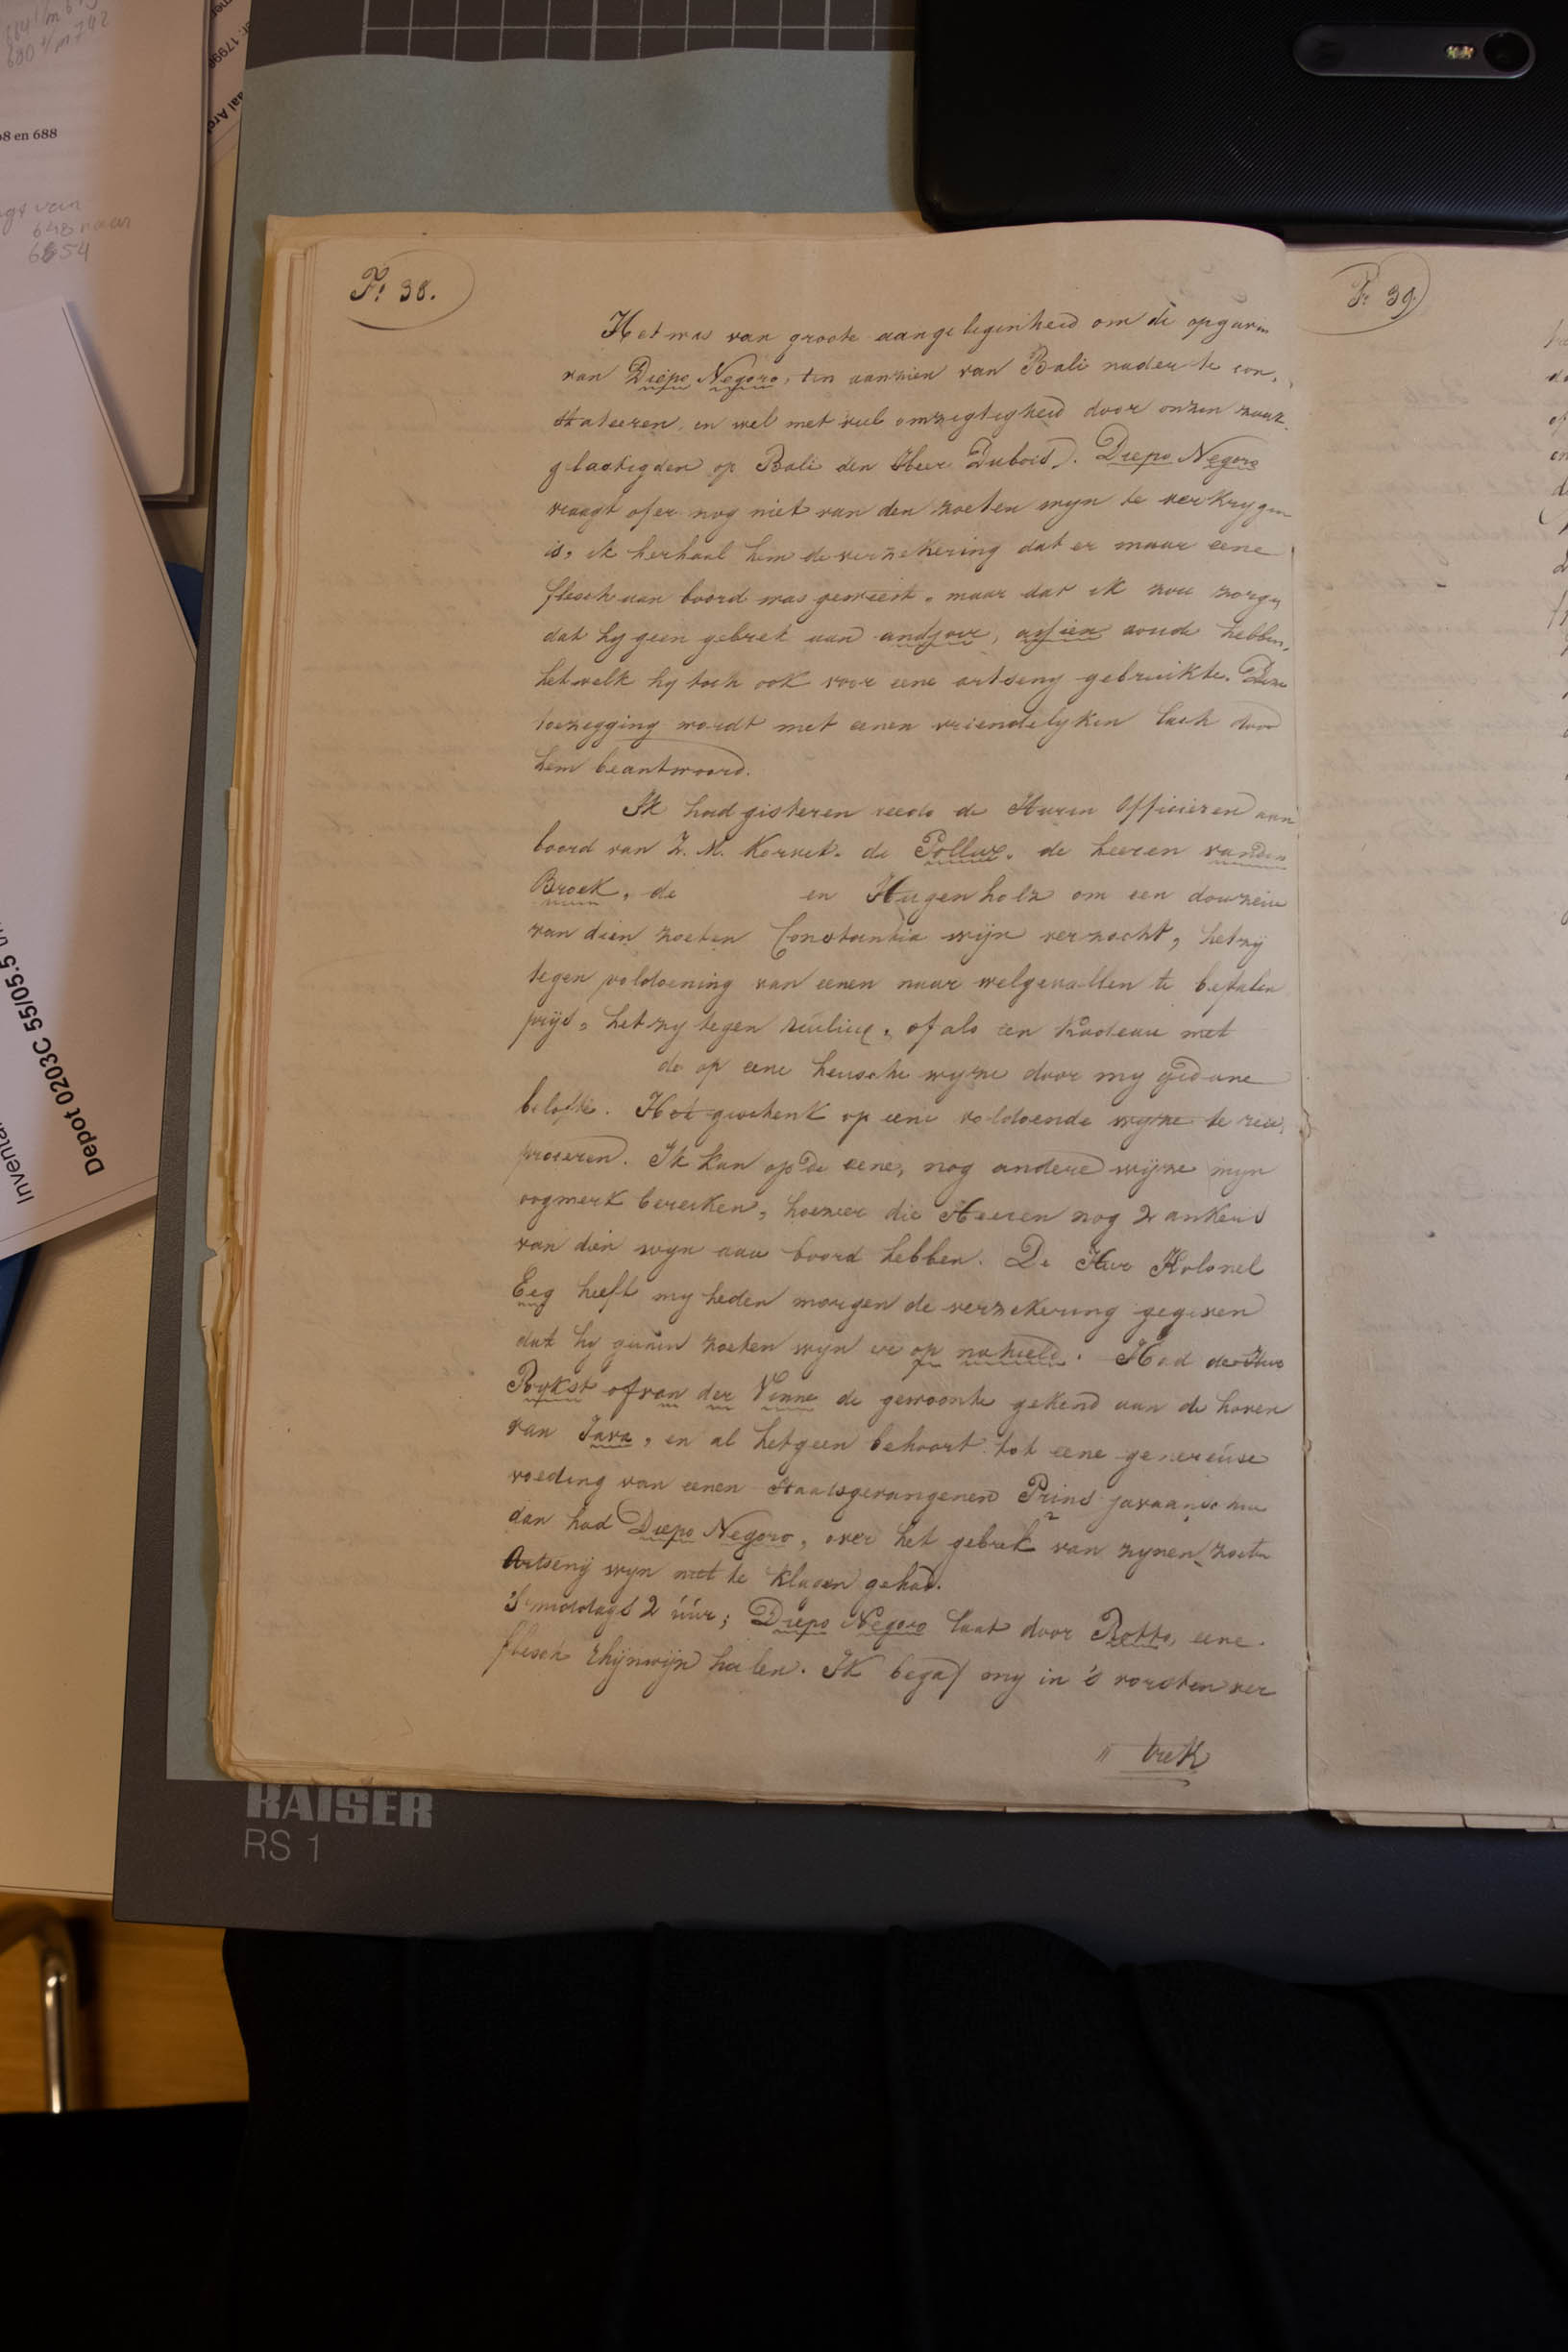 F: 38.
Het was van groote aangelegenheid om de opgaven
van Diepo Negoro, ten aanzien van Bali nader te con,
stateeren, en wel met veel omzigtigheid door onzen
op Bali den Heer Dubois). Diepo Negoro
vraagt of er nog niet van den zoeten wyn te verkrygen
is, ik herhaal hem de verzekering dat er maar eene
flesch aan boord was geweest, maar dat ik zou zorgen
dat hy geen gebrek aan andjoer, asjem zoude hebben,
hetwelk hy toch ook voor eene artseny gebruikte. Deze
toezegging wordt met eenen vriendelyken lach door
hem beantwoord.
Ik had gisteren reeds de Heeren Officieren aan
boord van Z. M. Korvet. de Pollux, de heeren vanden
Broek, de en Hugenholz om een douzein
van dien zoeten Constantia wijn verzocht, hetzij
tegen voldoening van eenen naar welgevallen te bepalen
prijs, het zy tegen , of als een Kadeau met
de op eene heusche wyze door my gedane
belofte. Het geschenk op eene voldoende wyze te reci,
proceren. Ik kan op de eene, nog andere wijze mijn
oogmerk bereiken, hoezeer die Heeren nog 2 ankers
van dien wyn aan boord hebben. De Heer Kolonel
Eeg heeft my heden morgen de verzekering gegeven
dat hy geenen zoeten wyn er op nahield. Had de Heer
Rykst of van der Vinne de gewoonte gekend aan de hoven
van Java, en al hetgeen behoort tot eene genereuse
voeding van eenen Staatsgevangenen Prins javaansche
dan had Diepo Negoro, over het gebrek van zynen zoeten
Artsenij wyn niet te klagen gehad.
'S middags 2 úúr; Diepo Negoro laat door Rotto, eene
flesch Rhijnwijn halen. Ik begaf my in 's vorsten ver
" trek
F: 39
8 en 688
648 naar
6654
Depot 0203C 55/05.5
KAISER
RS 1